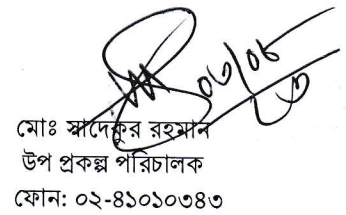 ০৩/০৮
মোঃ সাদেকুর রহমান
উপ প্রকল্প পরিচালক
ফোন: ০২-৪১০১০৩৪৩